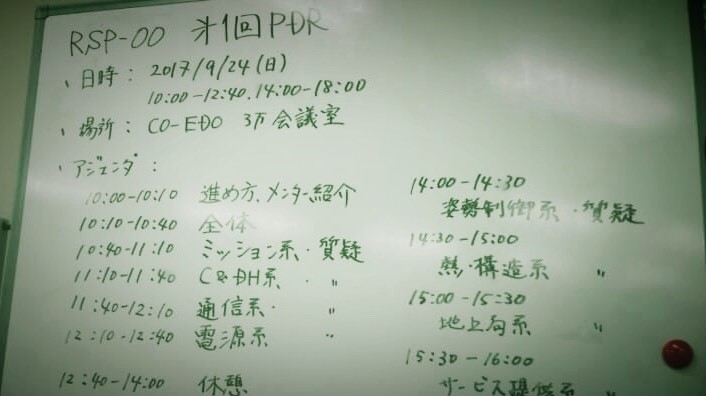 RSP-00 第1回 PDR
、日時: 2017/9/24(日)
10:00-12:40, 14:00-18:00
、場所: CO-EDO 3万会議室
、アジェンダ:
10:00-10:10 進め方、メンター紹介
10:10-10:40 全体
10:40-11:10 ミッション系・質疑
11:10-11:40 C&DH系・〃
11:40-12:10 通信系・〃
12:10-12:40 電源系 〃
12:40-14:00 休憩
14:00-14:30
姿勢制御系・質疑
14:30-15:00
熱・構造系 〃
15:00-15:30
地上局系 〃
15:30-16:00
サービス提供系 〃